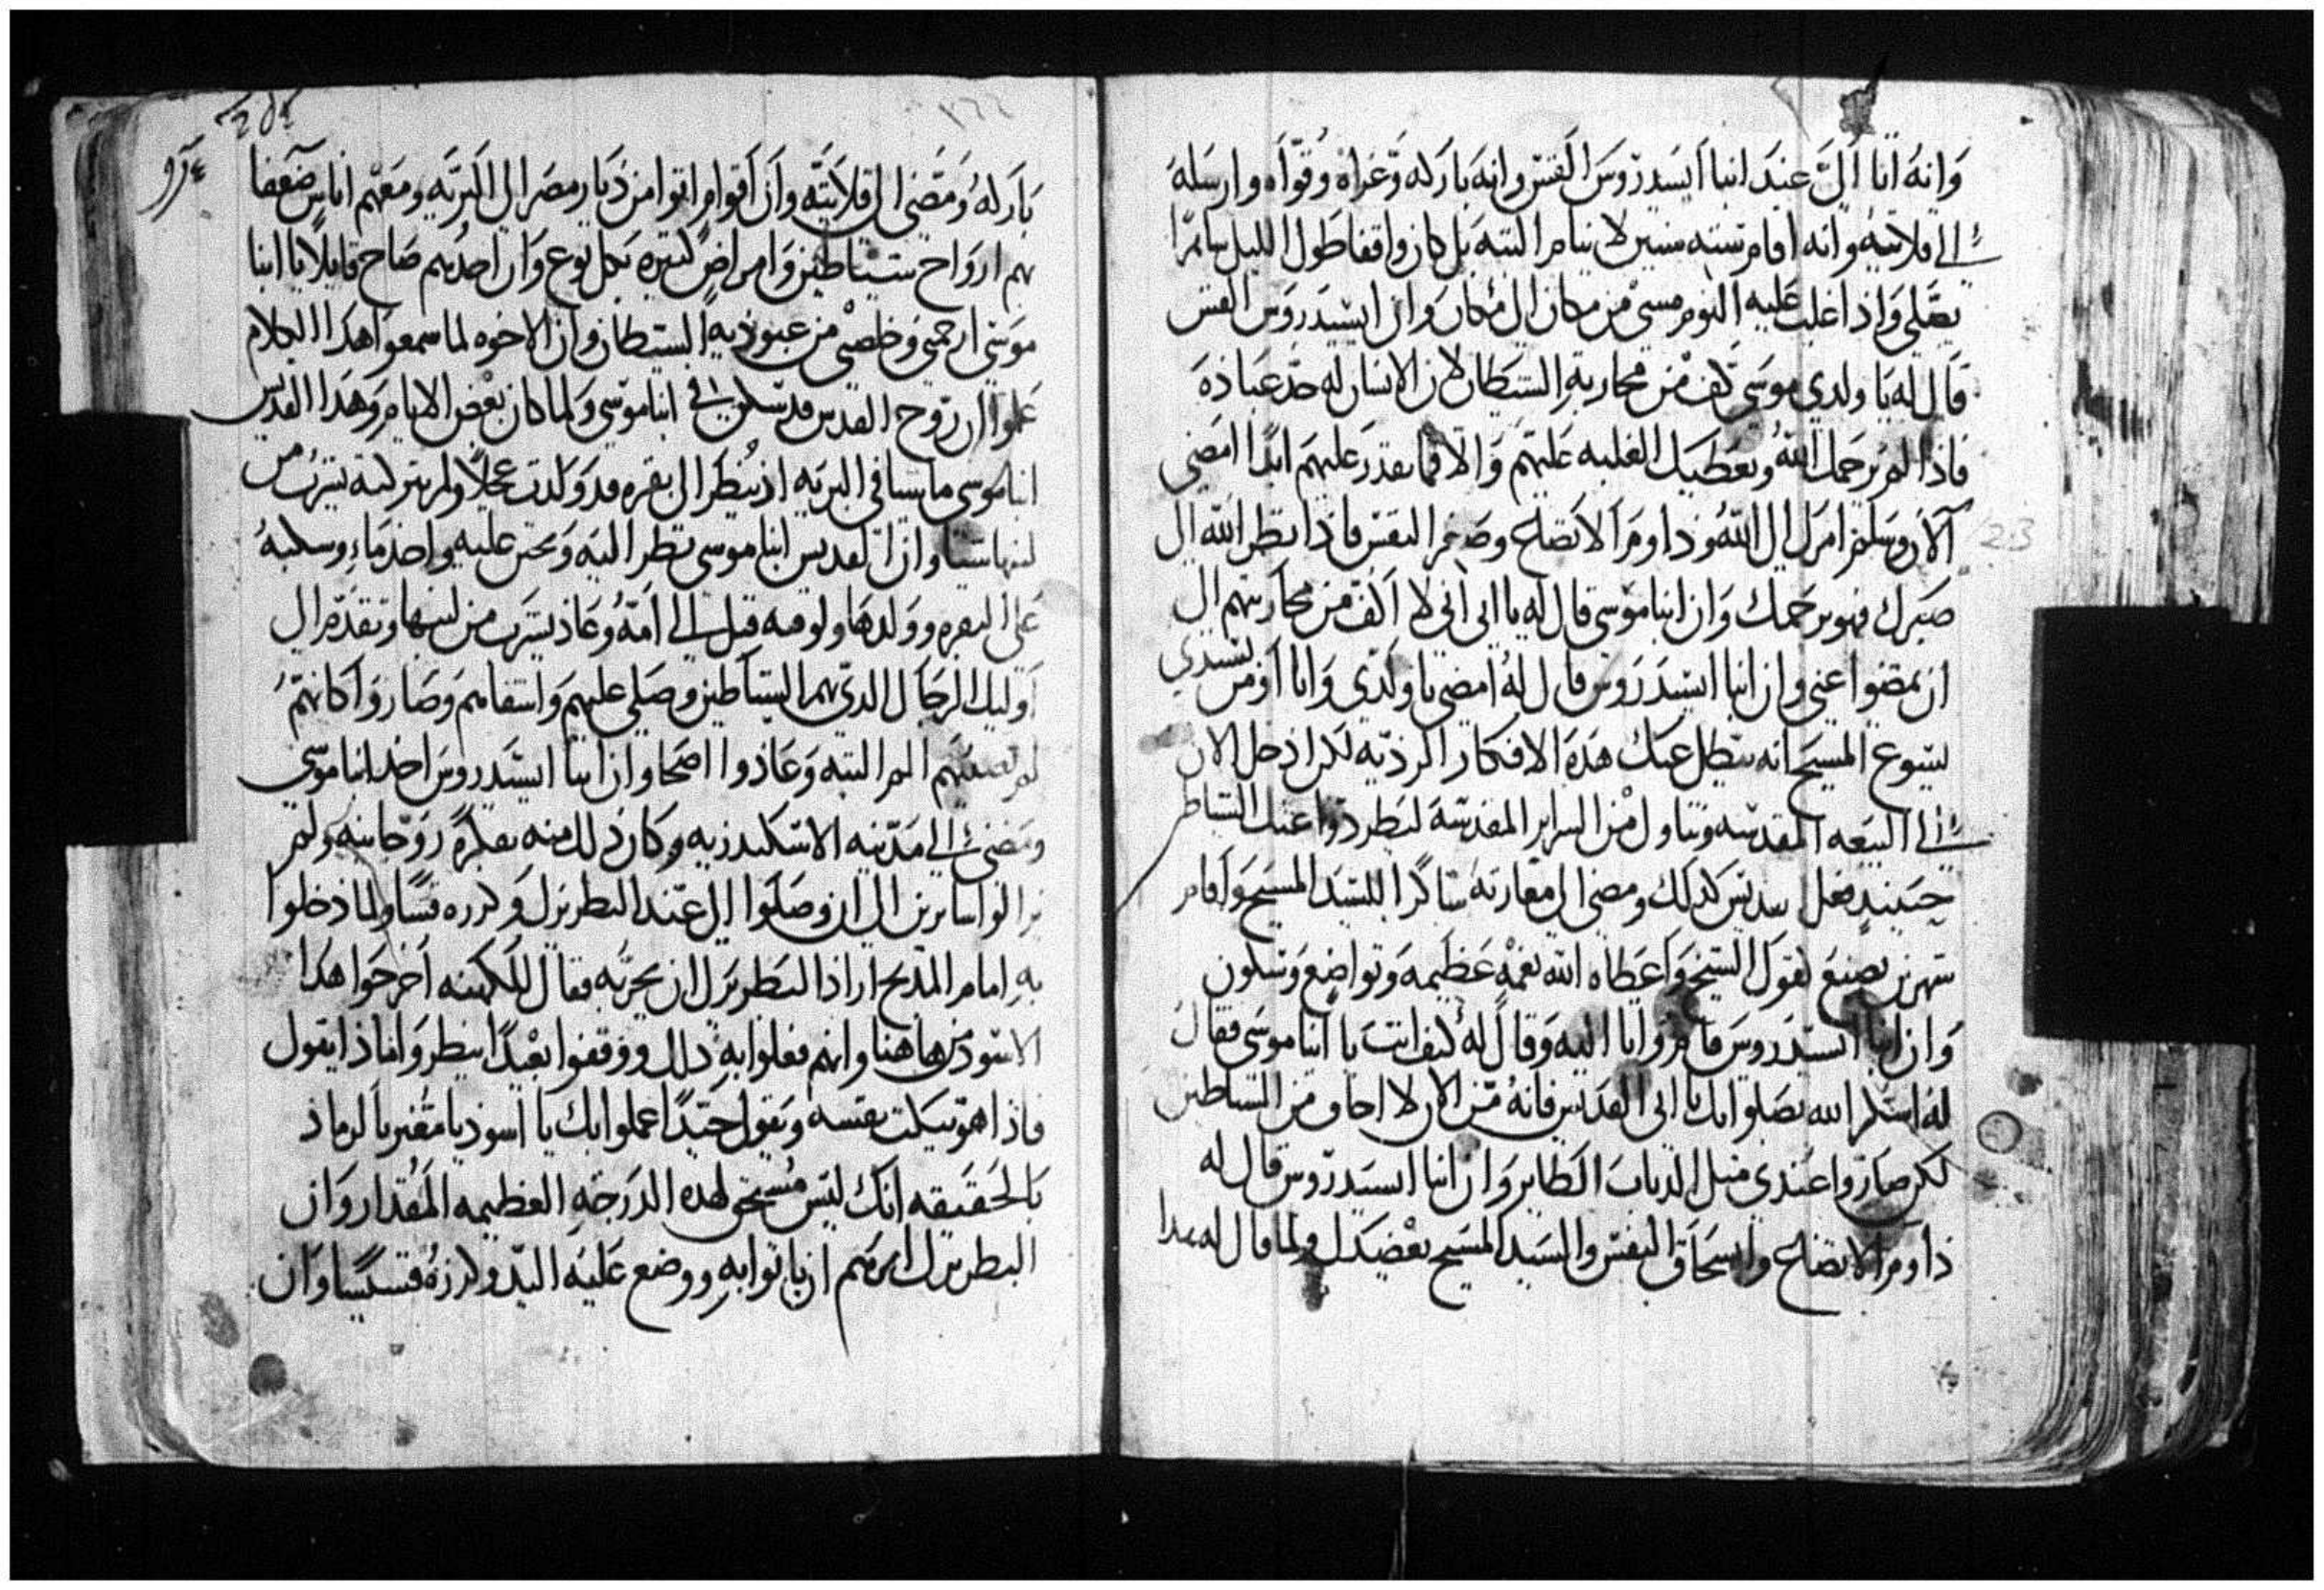 وَانهُ اتا اليَّ عِندَ انبا ايسيدرُوسَ القسّ وانهَ بارَكه وَّعَزاهُ وُقوّاه وارسَلهَ
الى قلايته وانه اقام سته سنين لا ينام البته بَل كان واقفا طول الليل ساهرًا
يصَلي وَاذا غلبَ عَليه النوم مسي من مكان الى مكان وان ايسيدَروس القس
قال له يا ولدي موسَى كف من محاربة الشيطان لان الانسان له حدّ عبادهَ
فاذا لم يرحمَك اللهُ ويعطيك الغلبه عَليهم وَالا فما تقدر عليهم ابدًا امضي
الان وسَلم امرك الى اللهُ وداوم الاتضاع وصَغر النفس فاذا نظر الله الى
صَبرك فهو يرحمك وَان انبا موسي قال له يا ابي اني لا اكف من محاربتهم الى
ان يمضوا عني وان انبا ايسيدَروس قال لهُ امضي يا ولدَي وَانا اومن بسَيدي
يسَوع المسيح انه يبطل عنك هَذه الافكار الرديه لكن ادخل الان
الى البيَعه المقدسه وتناول من السراير المقدسَة ليَطردوا عنك الشياطين
حينيد فعل القديس كدلك ومضي الى مغارته شاكرًا للسَيد المسَيح وَاقام
شهرين يصنع بقول الشيخ وَاعطاه الله نعمه عَظيمه وَتواضع وَسكون
وَان انبا ايسيدَروس قام وَاتا اليه وَقال لهُ كيف انت يا انبا موسَى فقالَ
لهُ اشكر الله بصَلواتك يا ابي القديس فانهُ من الان لا اخاف من الشياطين
لكن صَاروا عَندي متل الدباب الطاير وَان انبا ايسيدرّوس قال له
داوم الاتضاع وانسحَاق النفس والسَيد المسَيح يعْضدَك ولما قال له هدا
بَاركهُ وَمَضَى الى قلايَته وَان اقوام اتوا من ديار مصَر الى البريَه ومعَهم اناسٍ ضعفا
بهم ارواح شياطين وَامراضٍ كتيره بكل نوع وَان احدُهم صَاح قايلًا يا انبا
موسَى ارحمني وخلصني من عبوديه الشيطان وان الاخوه لما سمعوا هدا الكلام
عَلموا ان روح القدس قد سكن في انبا موسَي وَلما كان بعض الايام وَهدا القديس
انبا موسي ماشيا في البريه اذ نظر الى بقره قد وَلدت عجلًا ولم يتركته يشرب من
لبنها شيا وان القديس انبا موسي نظر اليه وَتحنن عليه واخذ ماءٍ وسكبهُ
على البقره وولدها ولوقته قبل الى امهُ وعاد يشرب من لبنها وتقدّم الى
اوليك الرجال الدي بهم الشياطين وصَلي عليهم وَاشفاهم وَصَاروا كانهمُ
لم يصيبهم الم البته وَعادوا اصحا وان انبا ايسَيدروس اخد انبا موسي
ومضي الى مَدينه الاسكندريه وكان دلك منه بفكرهٍ روحانيه ولم
يزالوا سايرين الى ان وصَلوا الى عند البطريرك وكرره قسًا ولما دخلوا
به امام المدبح اراد البطريرك ان يجربه فقال للكهنه اخرجوا هَدا
الاسود من هاهنا وانهم فعلوا به دلك ووقفوا بعْيدًا ينظروا ماذا يقول
فاذا هو يبكت نفسه ويقول جيدًا عملوا بك يا اسود يا مغير بالرماد
بالحقيقه انك ليس مُستحق لهده الدرَجَةِ العظيمه المقدار وَان
البطريرك امرهم ان ياتوا به ووضع عَليَه اليّد وكرزهُ قسيسًا وَان